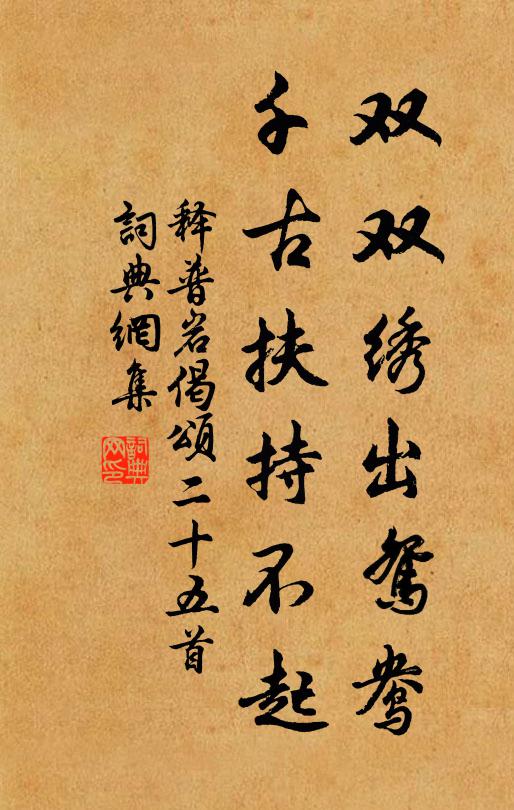 双双绣出鸳鸯
千古扶持不起
释普岩偈颂二十五首
詞典網集
詞典网印